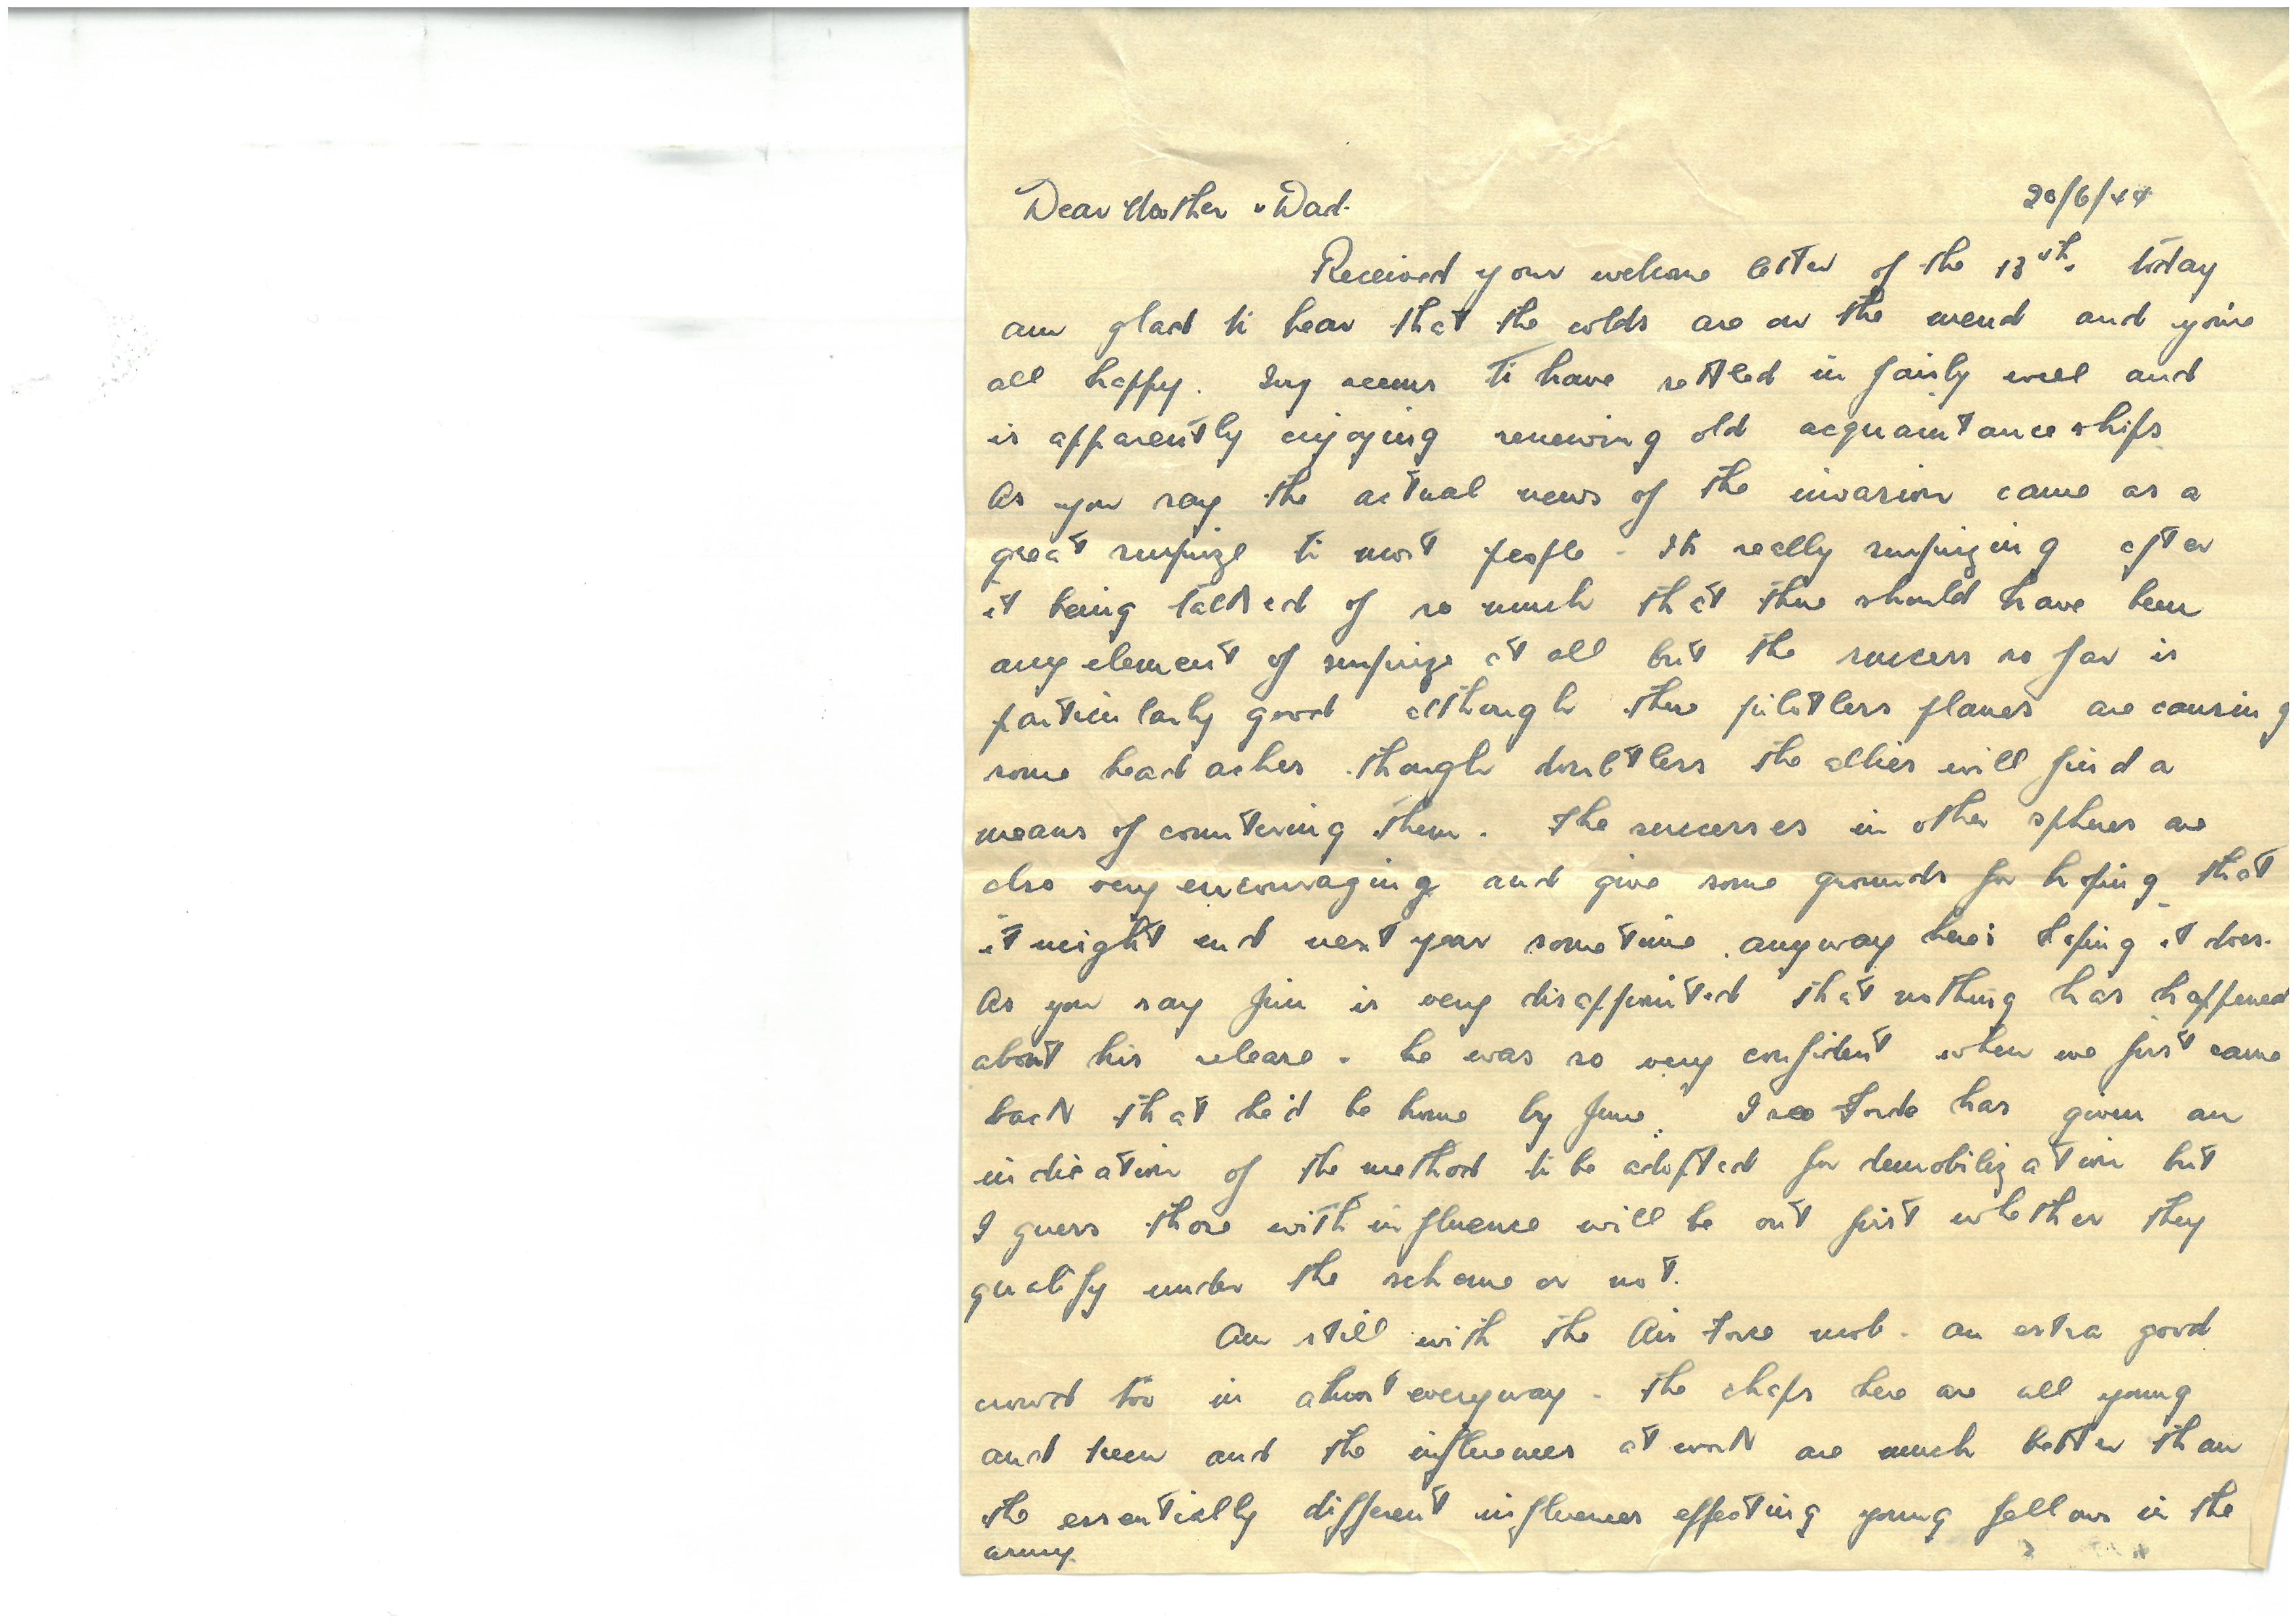 Dear Mother & Dad. 20/6/44
Received your welcome letter of the 13th. today
am glad to hear that the colds are on the mend and you're
all happy. seems to have settled in fairly well and
is apparently enjoying renewing old acquaintanceships
As you say the actual news of the invasion came as a
great surprize to most people - It's really surprizing after
it being talked of so much that there should have been
any element of surprize at all but the success so far is
particularly good although these pilotless planes are causing
some headaches though doubtless the allies will find a
means of countering them. The successes in other spheres are
also very encouraging and give some grounds for hoping that
it might end next year sometime. anyway here's hoping it does.
As you say Jim is very disappointed that nothing has happened
about his release - he was so very confident when we first came
back that he'd be home by June. I see Forde has given an
indication of the method to be adopted for demobilization but
I guess those with influence will be out first whether they
qualify under the scheme or not.
Am still with the Air Force mob - an extra good
crowd too in almost everyway - the chaps here are all young
and keen and the influences at work are much better than
the essentially different influences effecting young fellows in the
army